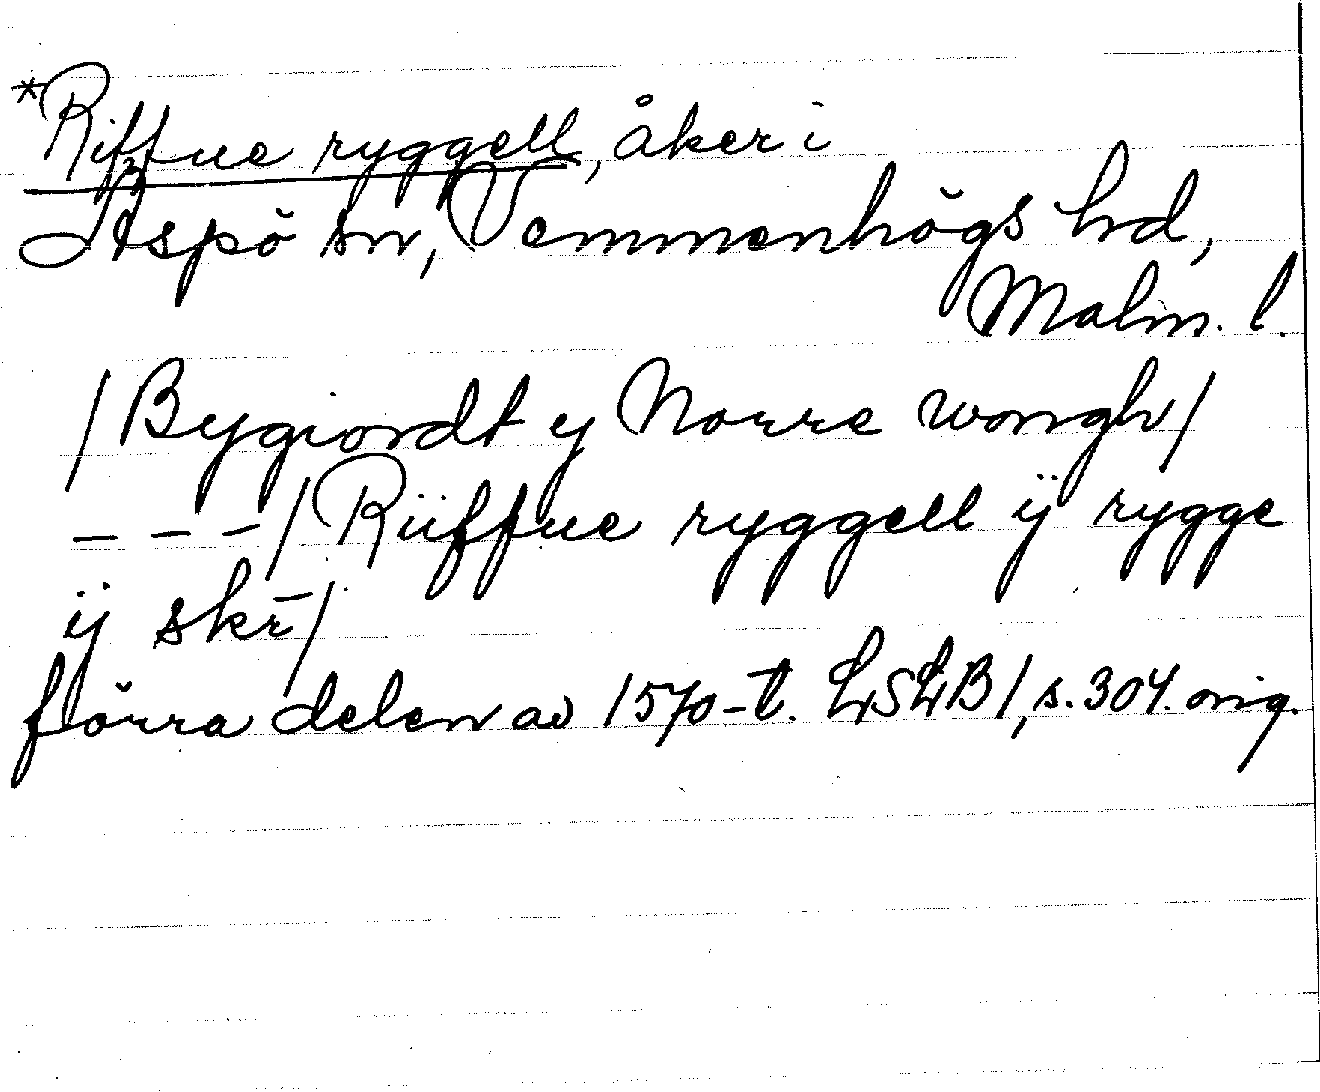 *Riffue ryggell, åker i
Äspö sn, Vemmenhögs hd,
Malm. l.
/Bygiordt y Norre wongh/
– – – /Rüffue ryggell ÿ rygge
ÿ skr̄/
förra delen av 1570-t. LSLB 1, s. 304. orig.